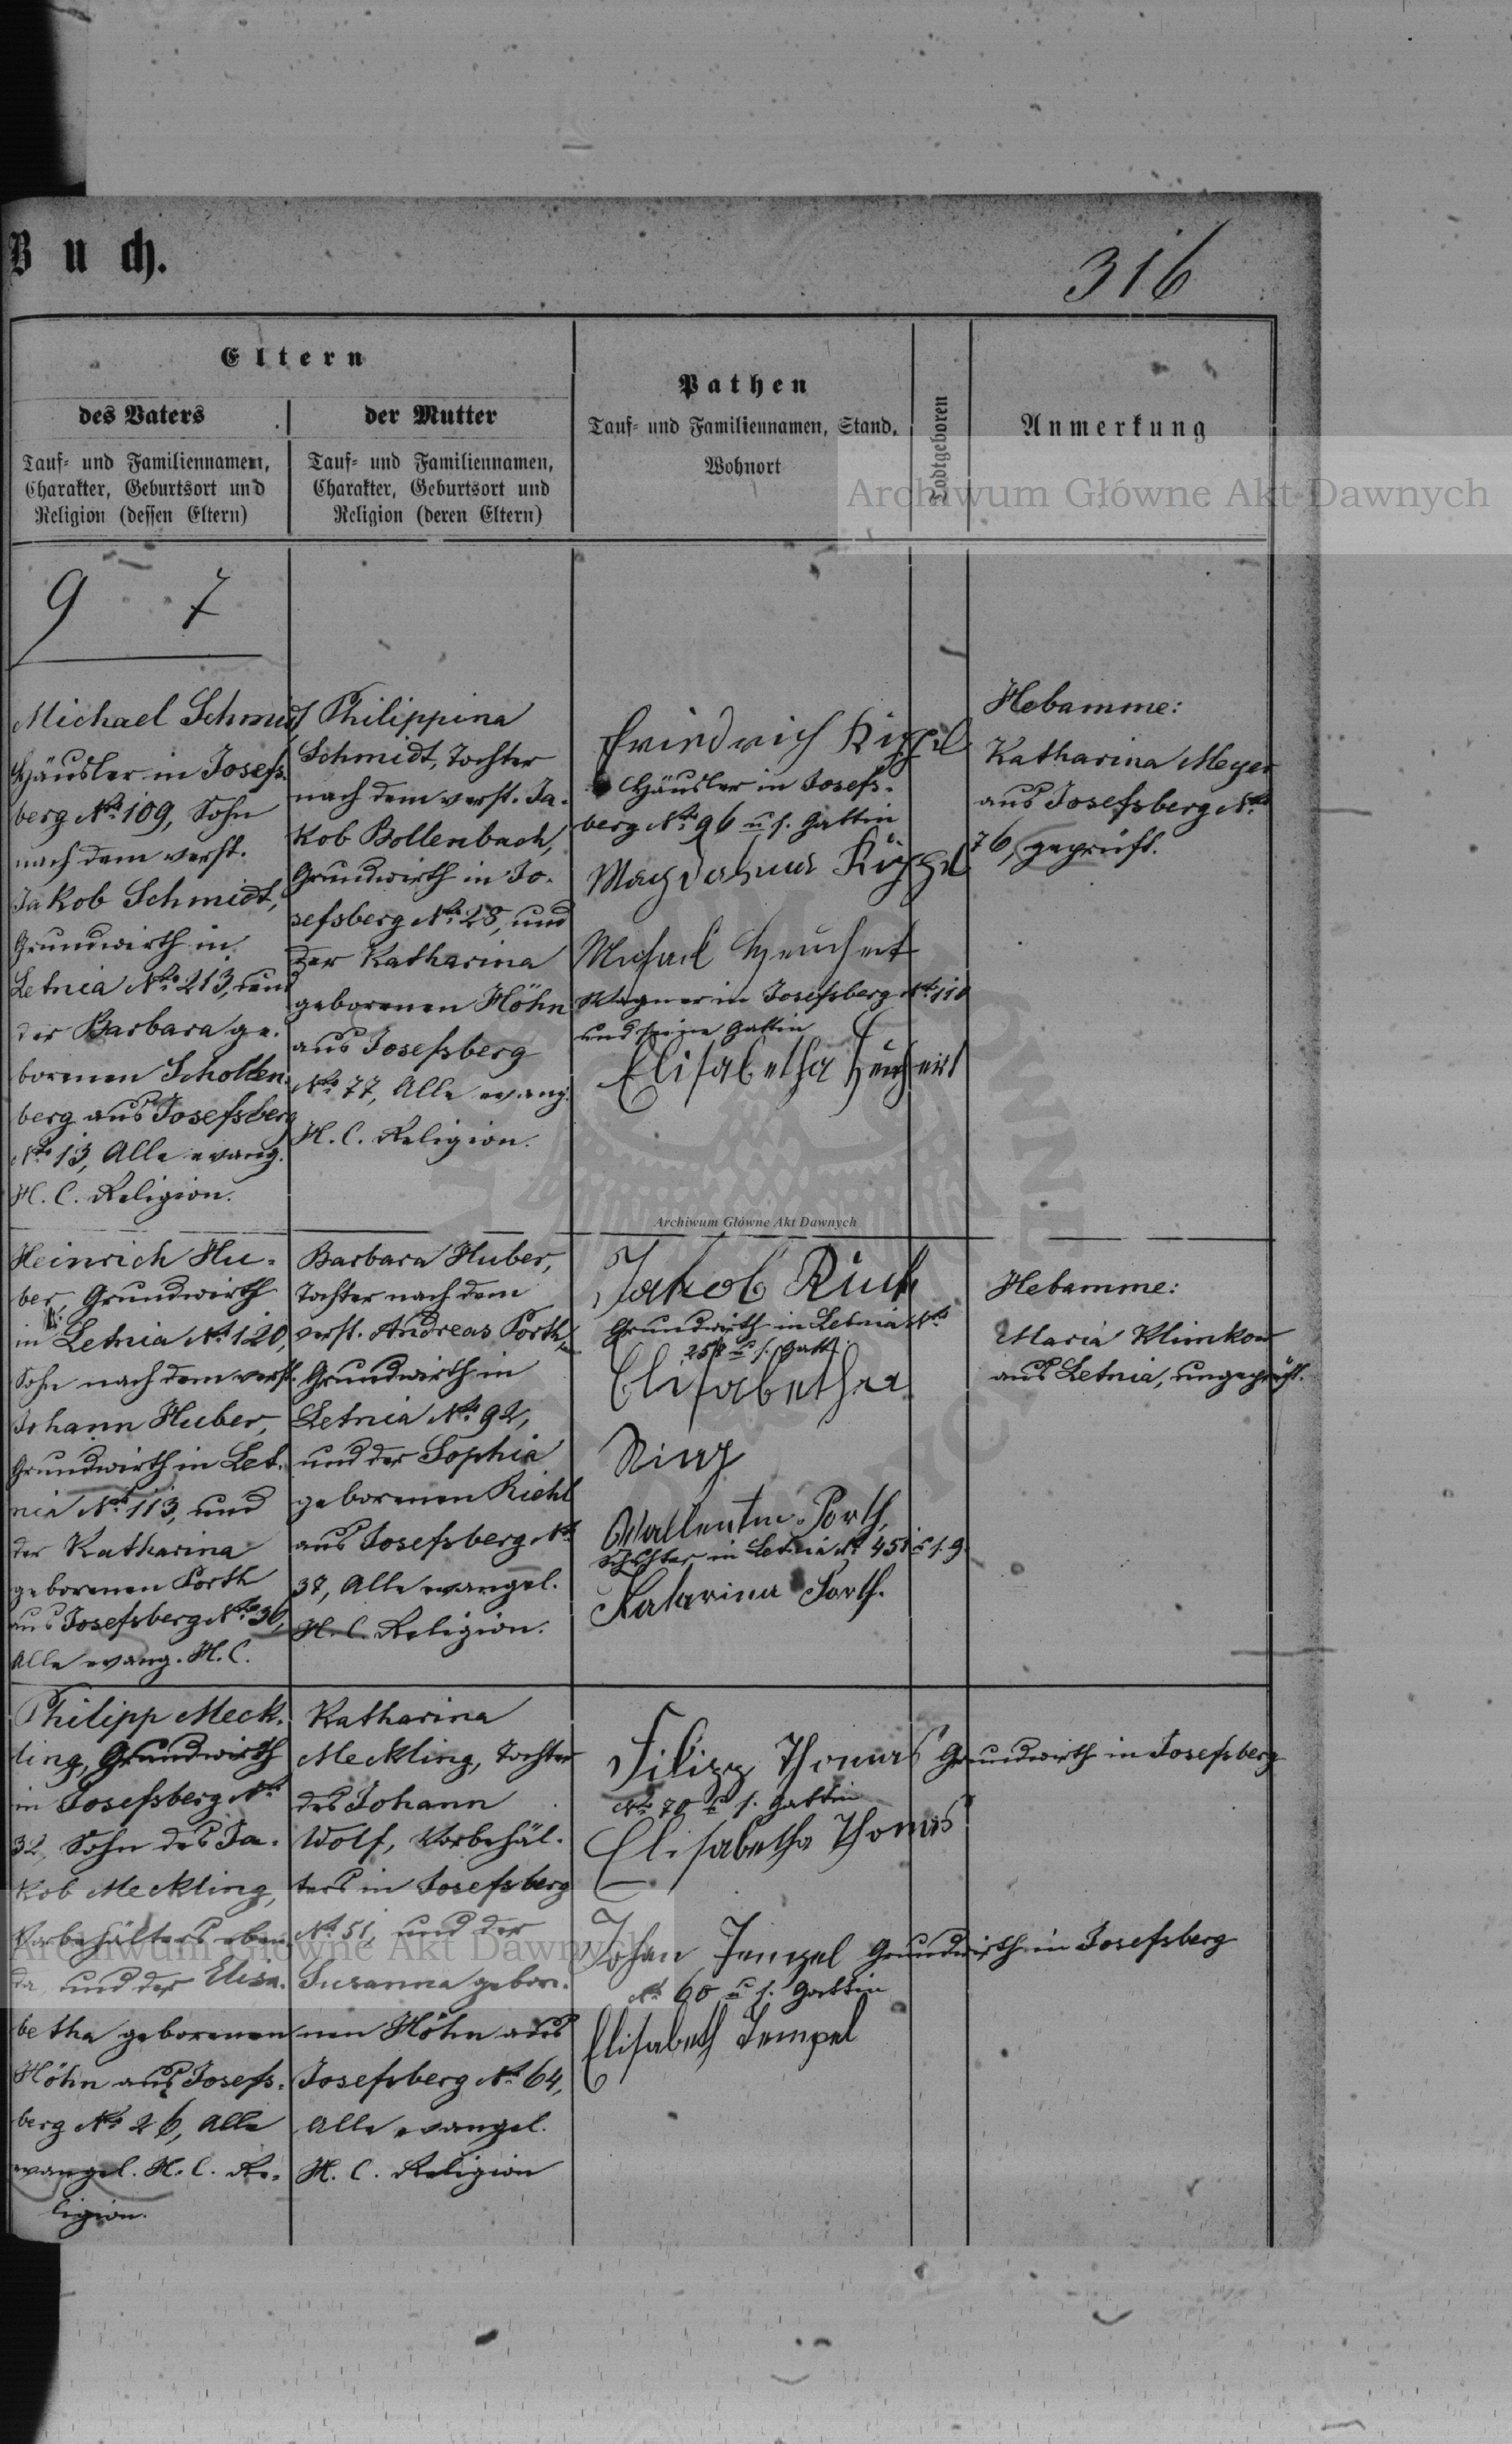 Buch.
316
Eltern
des Vaters
Tauf- und Familiennamen,
Charakter, Geburtsort und
Religion (dessen Eltern)
der Mutter
Tauf- und Familiennamen,
Charakter, Geburtsort und
Religion (deren Eltern)
Pathen
Tauf- und Familiennamen, Stand,
Wohnort
Todtgeboren
Anmerkung
Archiwum Główne Akt Dawnych
9 7
Michael Schmidt,
Häusler in Josefs-
berg No. 109, Sohn
nach dem verst.
Jakob Schmidt,
Grundwirth in
Letnia No. 213, und
der Barbara ge-
borenen Schollen-
berg aus Josefsberg
No. 13, Alle evang.
H. C. Religion.
Philippina
Schmidt, Tochter
nach dem verst. Ja-
kob Bollenbach,
Grundwirth in Jo-
sefsberg No. 28, und
der Katharina
geborenen Höhn
aus Josefsberg
No. 77, Alle evang.
H. C. Religion.
Friedrich Kippel
Häusler in Josefs-
berg No. 96 u. s. Gattin
Magdalena Kippel
Michael Heuchert
Wagner in Josefsberg No. 110
und seine Gattin
Elisabetha Heuchert
Hebamme:
Katharina Meyer
aus Josefsberg No.
76, geprüft.
Archiwum Główne Akt Dawnych
Heinrich Hu-
ber, Grundwirth
in Letnia No. 120,
Sohn nach dem verst.
Johann Huber,
Grundwirth in Let-
nia No. 113, und
der Katharina
geborenen Porth
aus Josefsberg No. 36,
Alle evang. H. C.
Barbara Huber,
Tochter nach dem
verst. Andreas Porth,
Grundwirth in
Letnia No. 92,
und der Sophia
geborenen Riehl
aus Josefsberg No.
37, Alle evangel.
H. C. Religion.
Jakob
Grundwirth in Letnia No.
u. s. Gatt.
Elisabetha
Wallentin Porth,
in Letnia No. u. s. g.
Katarina Porth.
Hebamme:
Maria Klimkow
aus Letnia, ungeprüft.
Philipp Meck-
ling, Grundwirth
in Josefsberg No.
32, Sohn des Ja-
kob Meckling,
Vorbehälters eben
da, und der Elisa-
betha geborenen
Höhn aus Josefs-
berg No. 26, Alle
evangel. H. C. Re-
ligion.
Katharina
Meckling, Tochter
des Johann
Wolf, Vorbehäl-
ters in Josefsberg
No. 51, und der
Susanna gebore-
nen Höhn aus
Josefsberg No. 64,
Alle evangel.
H. C. Religion
Filipp Thomas Grundwirth in Josefsberg
No. 70 u. s. Gattin
Elisabetha Thomas
Johan Tempel Grundwirth in Josefsberg
No. 60 u. s. Gattin
Elisabeth Tempel
Archiwum Główne Akt Dawnych